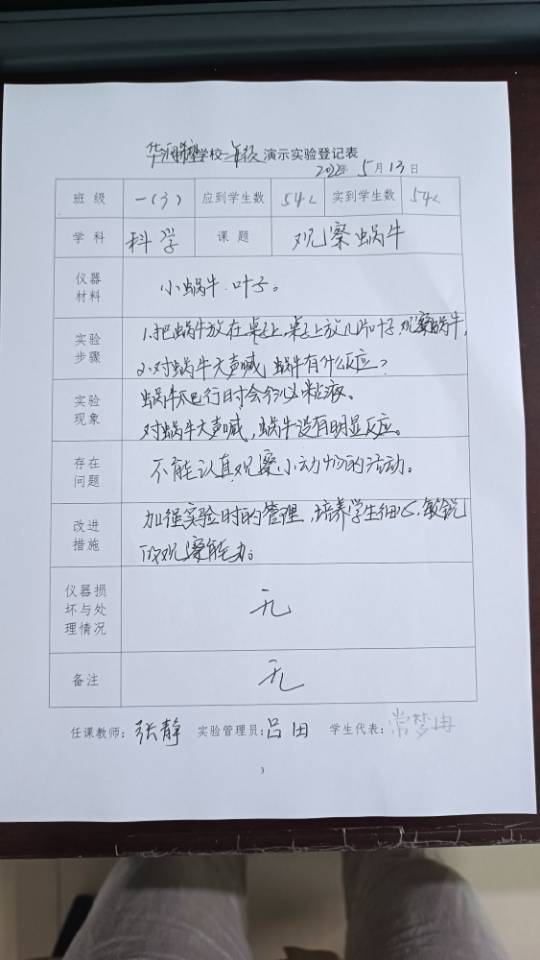 学校一年级演示实验登记表
5月13日
班级 一(3) 应到学生数 54人 实到学生数 54人
学科 科学 课题 观察蜗牛
仪器材料 小蜗牛.叶子。
实验步骤 1.把蜗牛放在桌子上,桌子上放几片叶子,观察蜗牛,
2.对蜗牛大声喊,蜗牛有什么反应?
实验现象 蜗牛爬行时会分泌粘液。
对蜗牛大声喊,蜗牛没有明显反应。
存在问题 不能认真观察小动物的活动。
改进措施 加强实验时的管理,培养学生细心、敏锐
的观察能力。
仪器损坏与处理情况 无
备注 无
任课教师:张静 实验管理员:吕田 学生代表:常梦冉